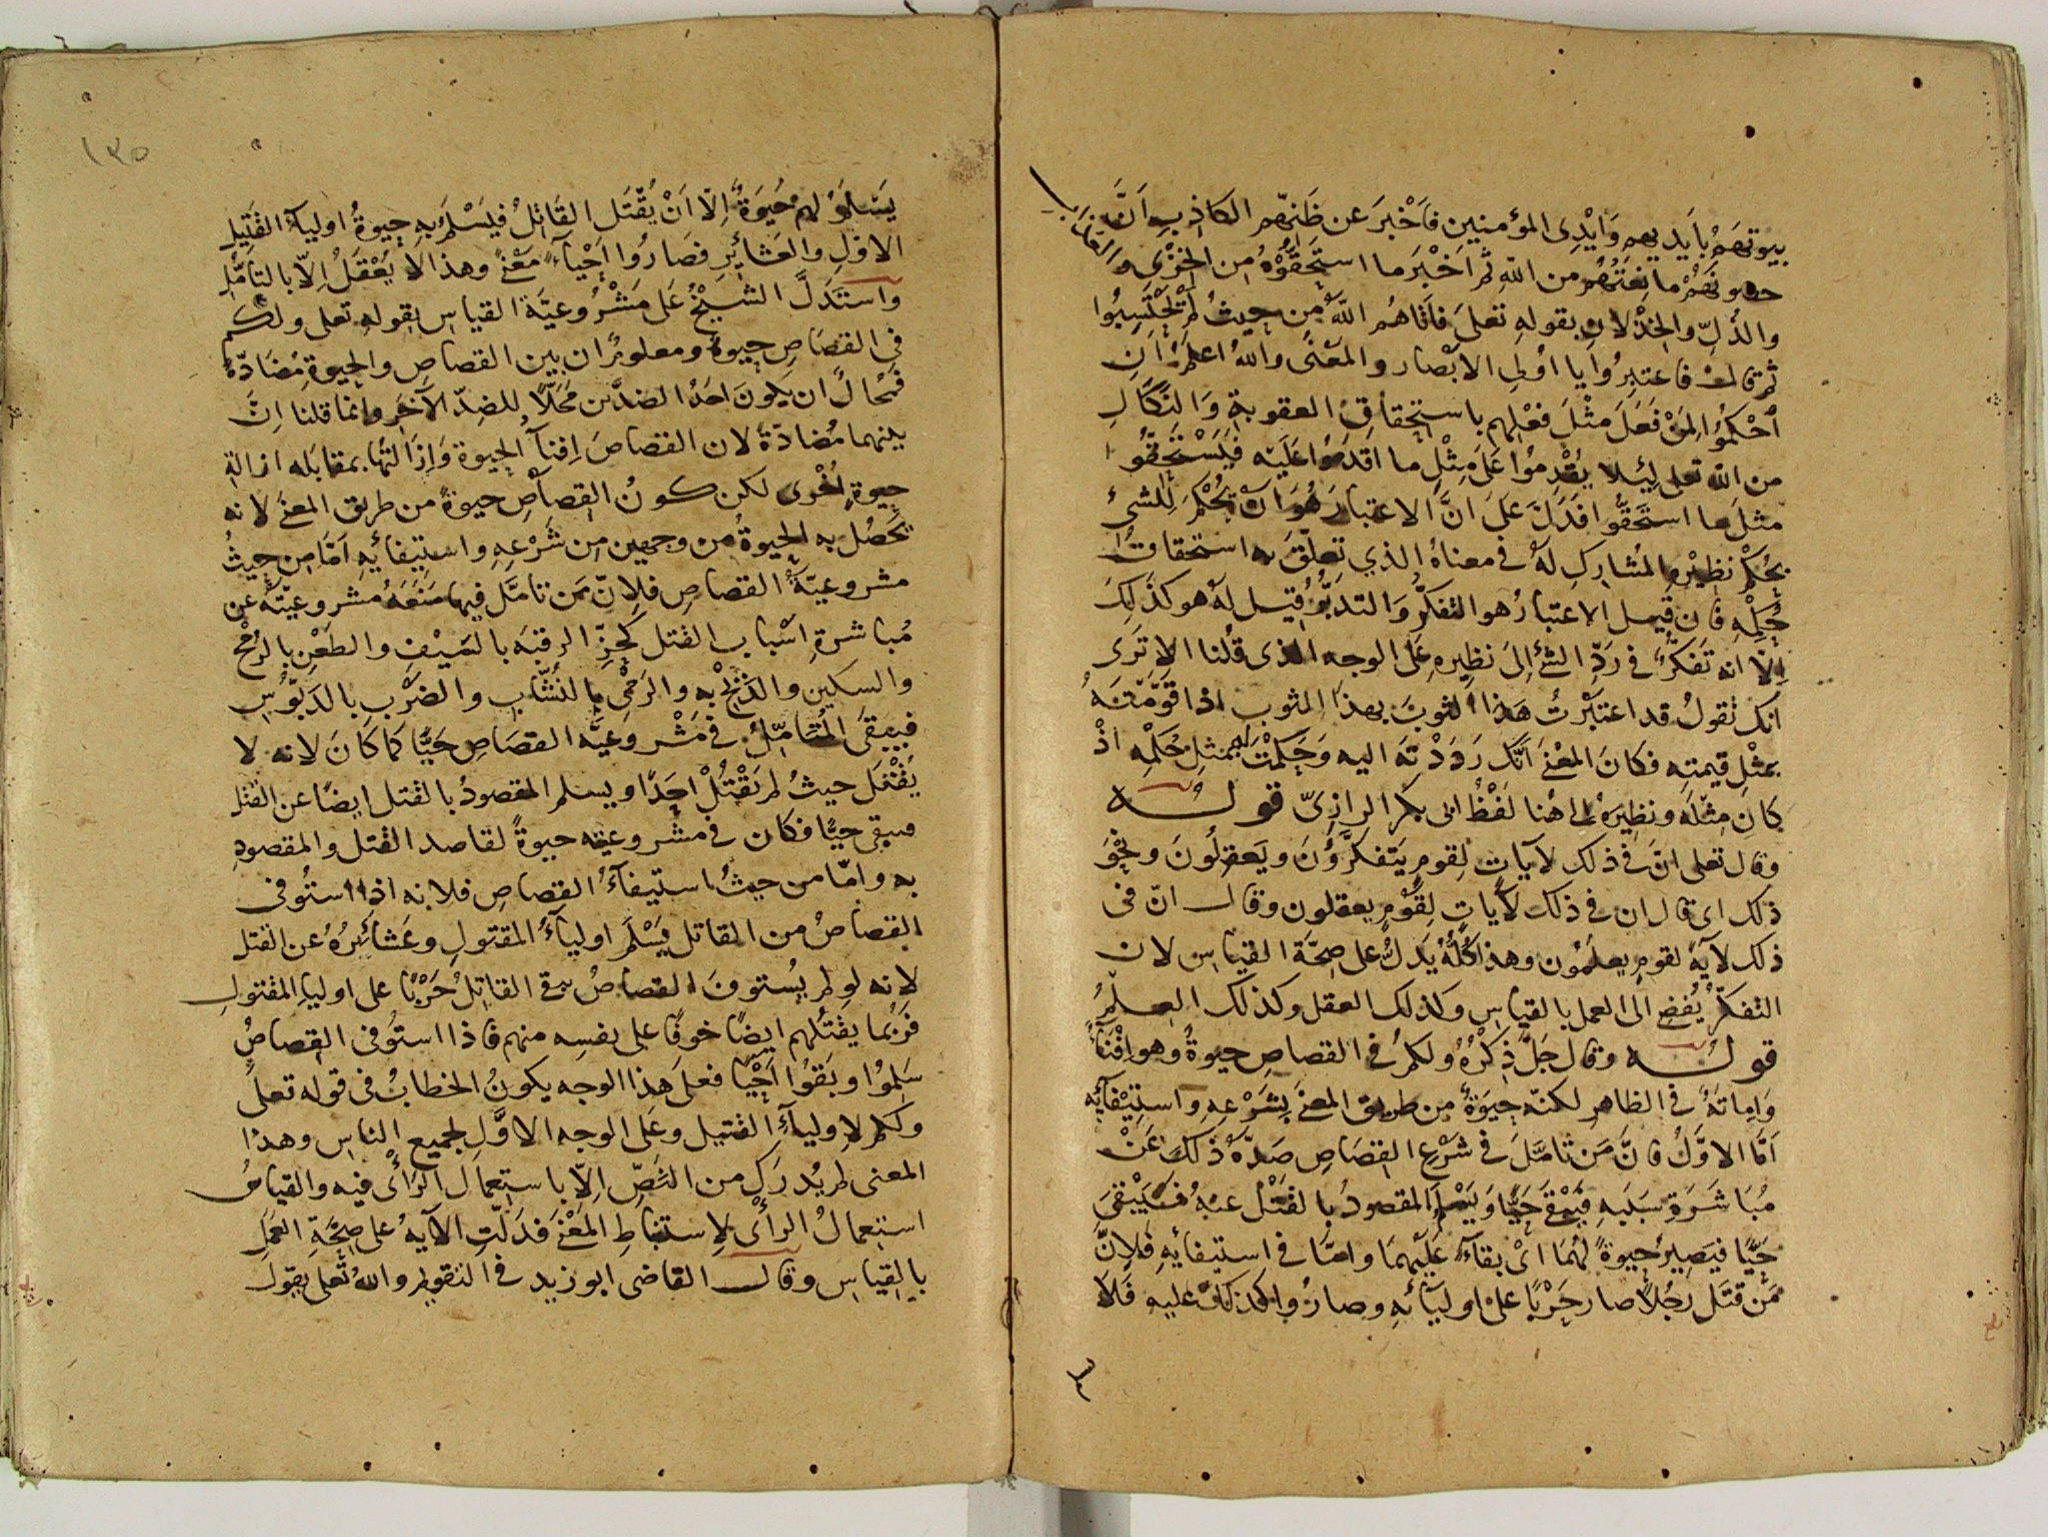 بيوتهم بايديهم وايدى المؤمنين فاخبر عن ظنهم الكاذب انّ
حصونهم مانعتهم من الله ثم اخبر ما استحقوه من الخزى والعذاب
والذل والخذلان بقوله تعلى فاتاهم الله من حيث لم يحتسبوا
ثم قال فاعتبروا يا اولى الابصار والمعنى والله اعلم ان
احكموا لمن فعل مثل فعلهم باستحقاق العقوبة والنكال
من الله تعلى لئلا يقدموا على مثل ما اقدموا عليه فيستحقوا
مثل ما استحقوا فدل على انّ الاعتبار هو ان تحكم للشئ
بحكم نظيره المشارك له فى معناه الذي تعلق به استحقاق
حكمه فان قيل الاعتبار هو التفكر والتدبّر قيل له هو كذلك
الا انه تفكر فى ردّ الشئ الى نظيره على الوجه الذى قلنا الا ترى
انك تقول قد اعتبرت هذا الثوب بهذا الثوب اذا قوّمته
بمثل قيمته فكان المعنى انّك رددته اليه وحكمت له بمثل حكمه اذ
كان مثله ونظيره الى هنا لفظ ابى بكر الرازىّ قوله
وقال تعلى انّ فى ذلك لآيات لقوم يتفكرون ويعقلون ونحو
ذلك اى قال ان فى ذلك لآيات لقوم يعقلون وقال انّ فى
ذلك لآية لقوم يعلمون وهذا كله يدلّ على صحّة القياس لان
التفكّر يُفضى الى العمل بالقياس وكذلك العقل وكذلك العلم
قوله وقال جلّ ذكره ولكم فى القصاص حيوة وهو افناء
واماتة فى الظاهر لكنّه حيوة من طريق المعنى بشرعه واستيفائه
امّا الاوّل فانّ من تامّل فى شرع القصاص صدّه ذلك عن
مباشرة سببه فيبقى حيّا ويسلم المقصود بالقتل عنه فيبقى
حيّا فيصير حيوة لهما اى بقاء عليهما وامّا فى استيفائه فلانّ
من قتل رجلا صار حربًا على اوليائه وصاروا كذلك عليه فلا
١٣٥
يسلم لهم حيوة الّا ان يقتل القاتل فيسلم به حيوة اولياء القتيل
الاول والعشائر فصاروا احياء معنى وهذا لا يعقل الّا بالتامّل
واستدلّ الشيخ على مشروعيّة القياس بقوله تعلى ولكم
فى القصاص حيوة ومعلوم ان بين القصاص والحيوة مضادّة
فمحال ان يكون احد الضدّين محلّا للضدّ الآخر وانما قلنا انّ
بينهما مضادّة لان القصاص افناء الحيوة وازالتها بمقابله ازالة
حيوة اخرى لكن كون القصاص حيوة من طريق المعنى لانه
تحصل به الحيوة من وجهين من شرعه واستيفائه امّا من حيث
مشروعيّة القصاص فلانّ من تامّل فيها منعه مشروعيّته عن
مباشرة اسباب القتل كحزّ الرقبة بالسيف والطعن بالرمح
والسكين والذبح به والرمى بالنشّاب والضرب بالدبّوس
فيبقى المتامّل فى مشروعيّة القصاص حيّا كما كان لانه لا
يُقتل حيث لم يقتل احدا ويسلم المقصود بالقتل ايضًا عن القتل
فيبقى حيّا فكان فى مشروعيته حيوة لقاصد القتل والمقصود
به وامّا من حيث استيفاء القصاص فلانه اذا استُوفى
القصاص من القاتل يسلم اولياء المقتول وعشائره عن القتل
لانه لو لم يستوف القصاص بقى القاتل حربًا على اولياء المقتول
فربّما يقتلهم ايضًا خوفًا على نفسه منهم فاذا استوفى القصاص
سلموا وبقوا احيا فعلى هذا الوجه يكون الخطاب فى قوله تعلى
ولكم لاولياء القتيل وعلى الوجه الاوّل لجميع الناس وهذا
المعنى لم يُدرَك من النصّ الّا باستعمال الرأى فيه والقياس
استعمال الرأى لاستنباط المعنى فدلّت الآية على صحّة العمل
بالقياس وقال القاضى ابو زيد فى التقويم والله تعلى يقول